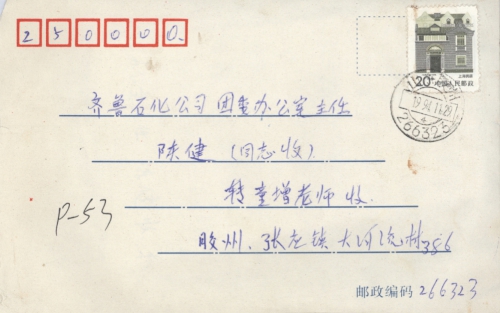 250000
20分 中国人民邮政
上海民居
1994.11.29
266325
齐鲁石化公司 团委办公室主任
陈健 (同志收)
转童增老师 收
P-53
胶州. 张应镇 大河流村386
邮政编码 266323